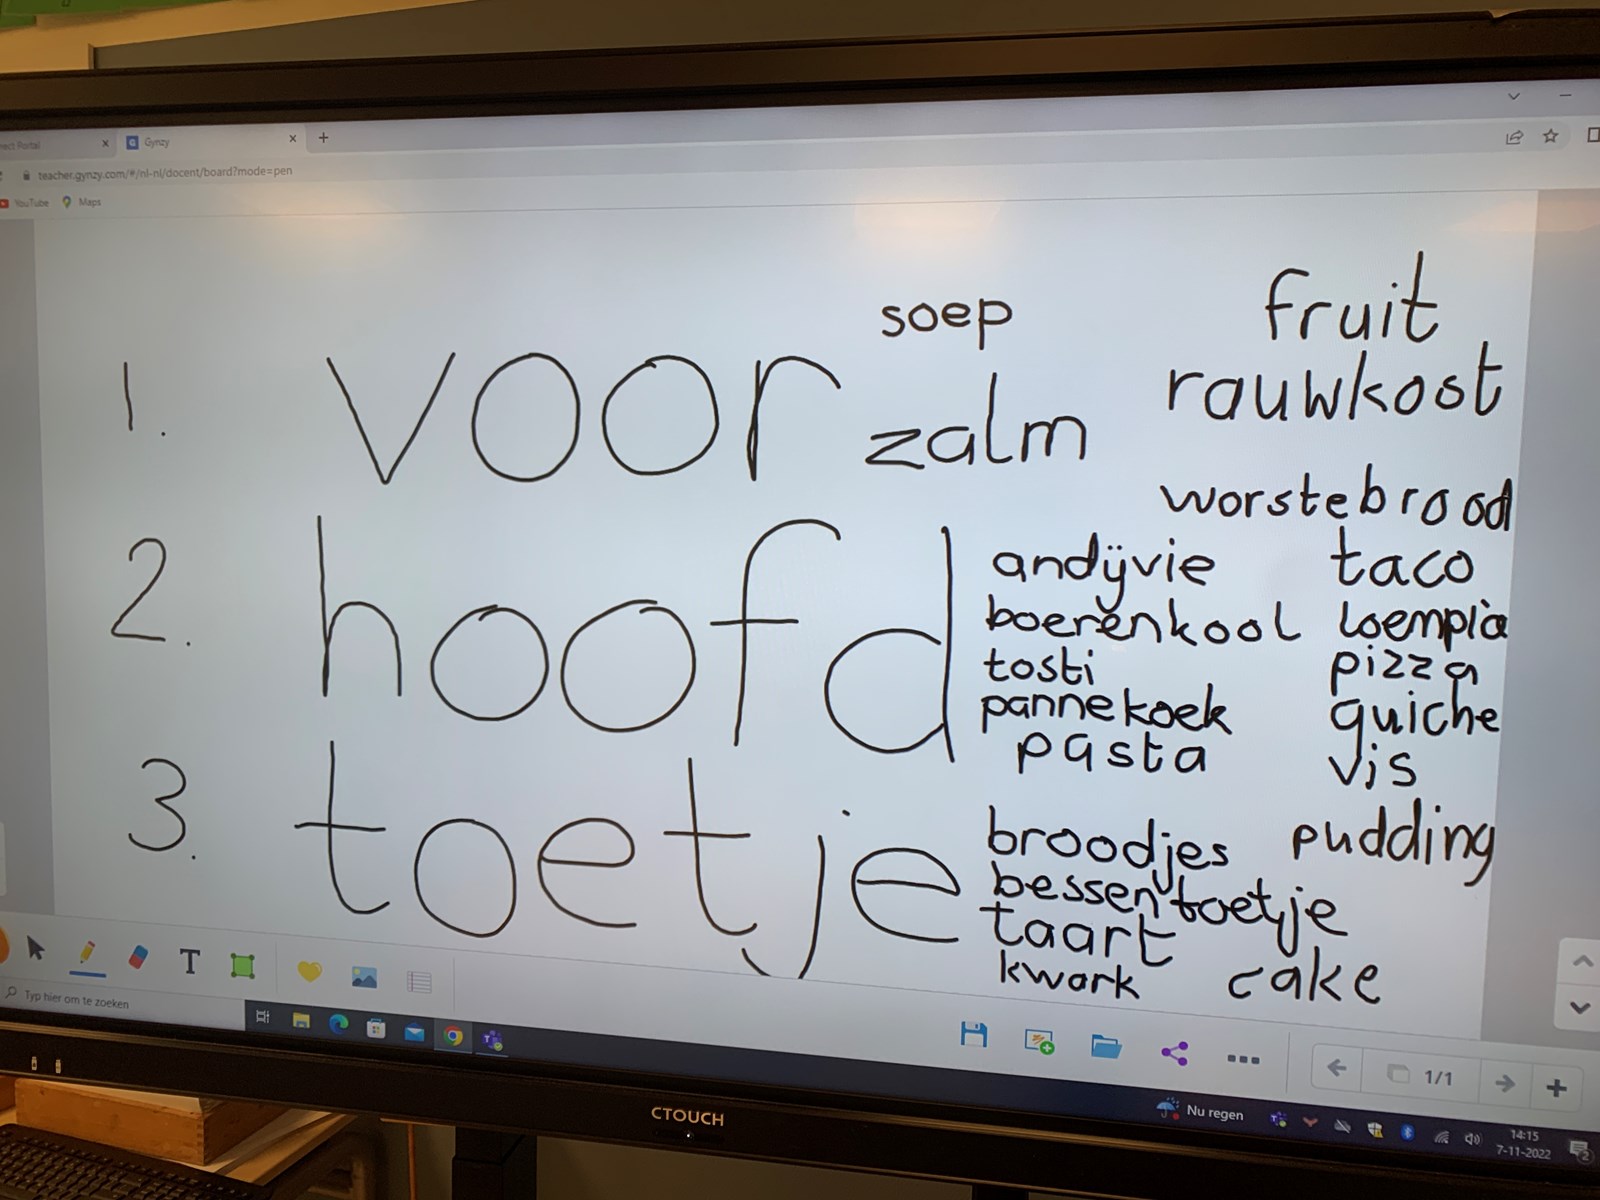 nect Portal
Gynzy
teacher.gynzy.com/#/nl-nl/docent/board?mode=pen
YouTube Maps
1. voor
soep
zalm
fruit
rauwkost
2. hoofd
worstebrood
andijvie taco
boerenkool loempia
tosti pizza
pannekoek quiche
pasta vis
3. toetje
broodjes pudding
bessentoetje
taart
kwark cake
T
Typ hier om te zoeken
1/1
Nu regen
14:15
7-11-2022
2
CTOUCH